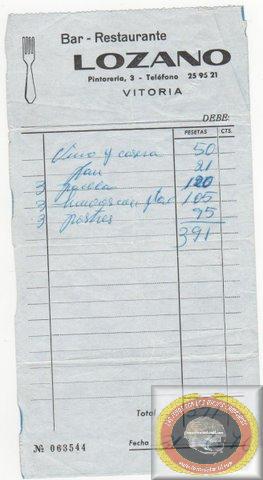 Bar - Restaurante
LOZANO
Pintorería, 3 - Teléfono 25 95 21
VITORIA
DEBE:
PESETAS CTS.
Vino y casera 50
pan 21
3 paella 120
3 huevos con 105
3 postres 95
391
Total
№ 063544 Fecha